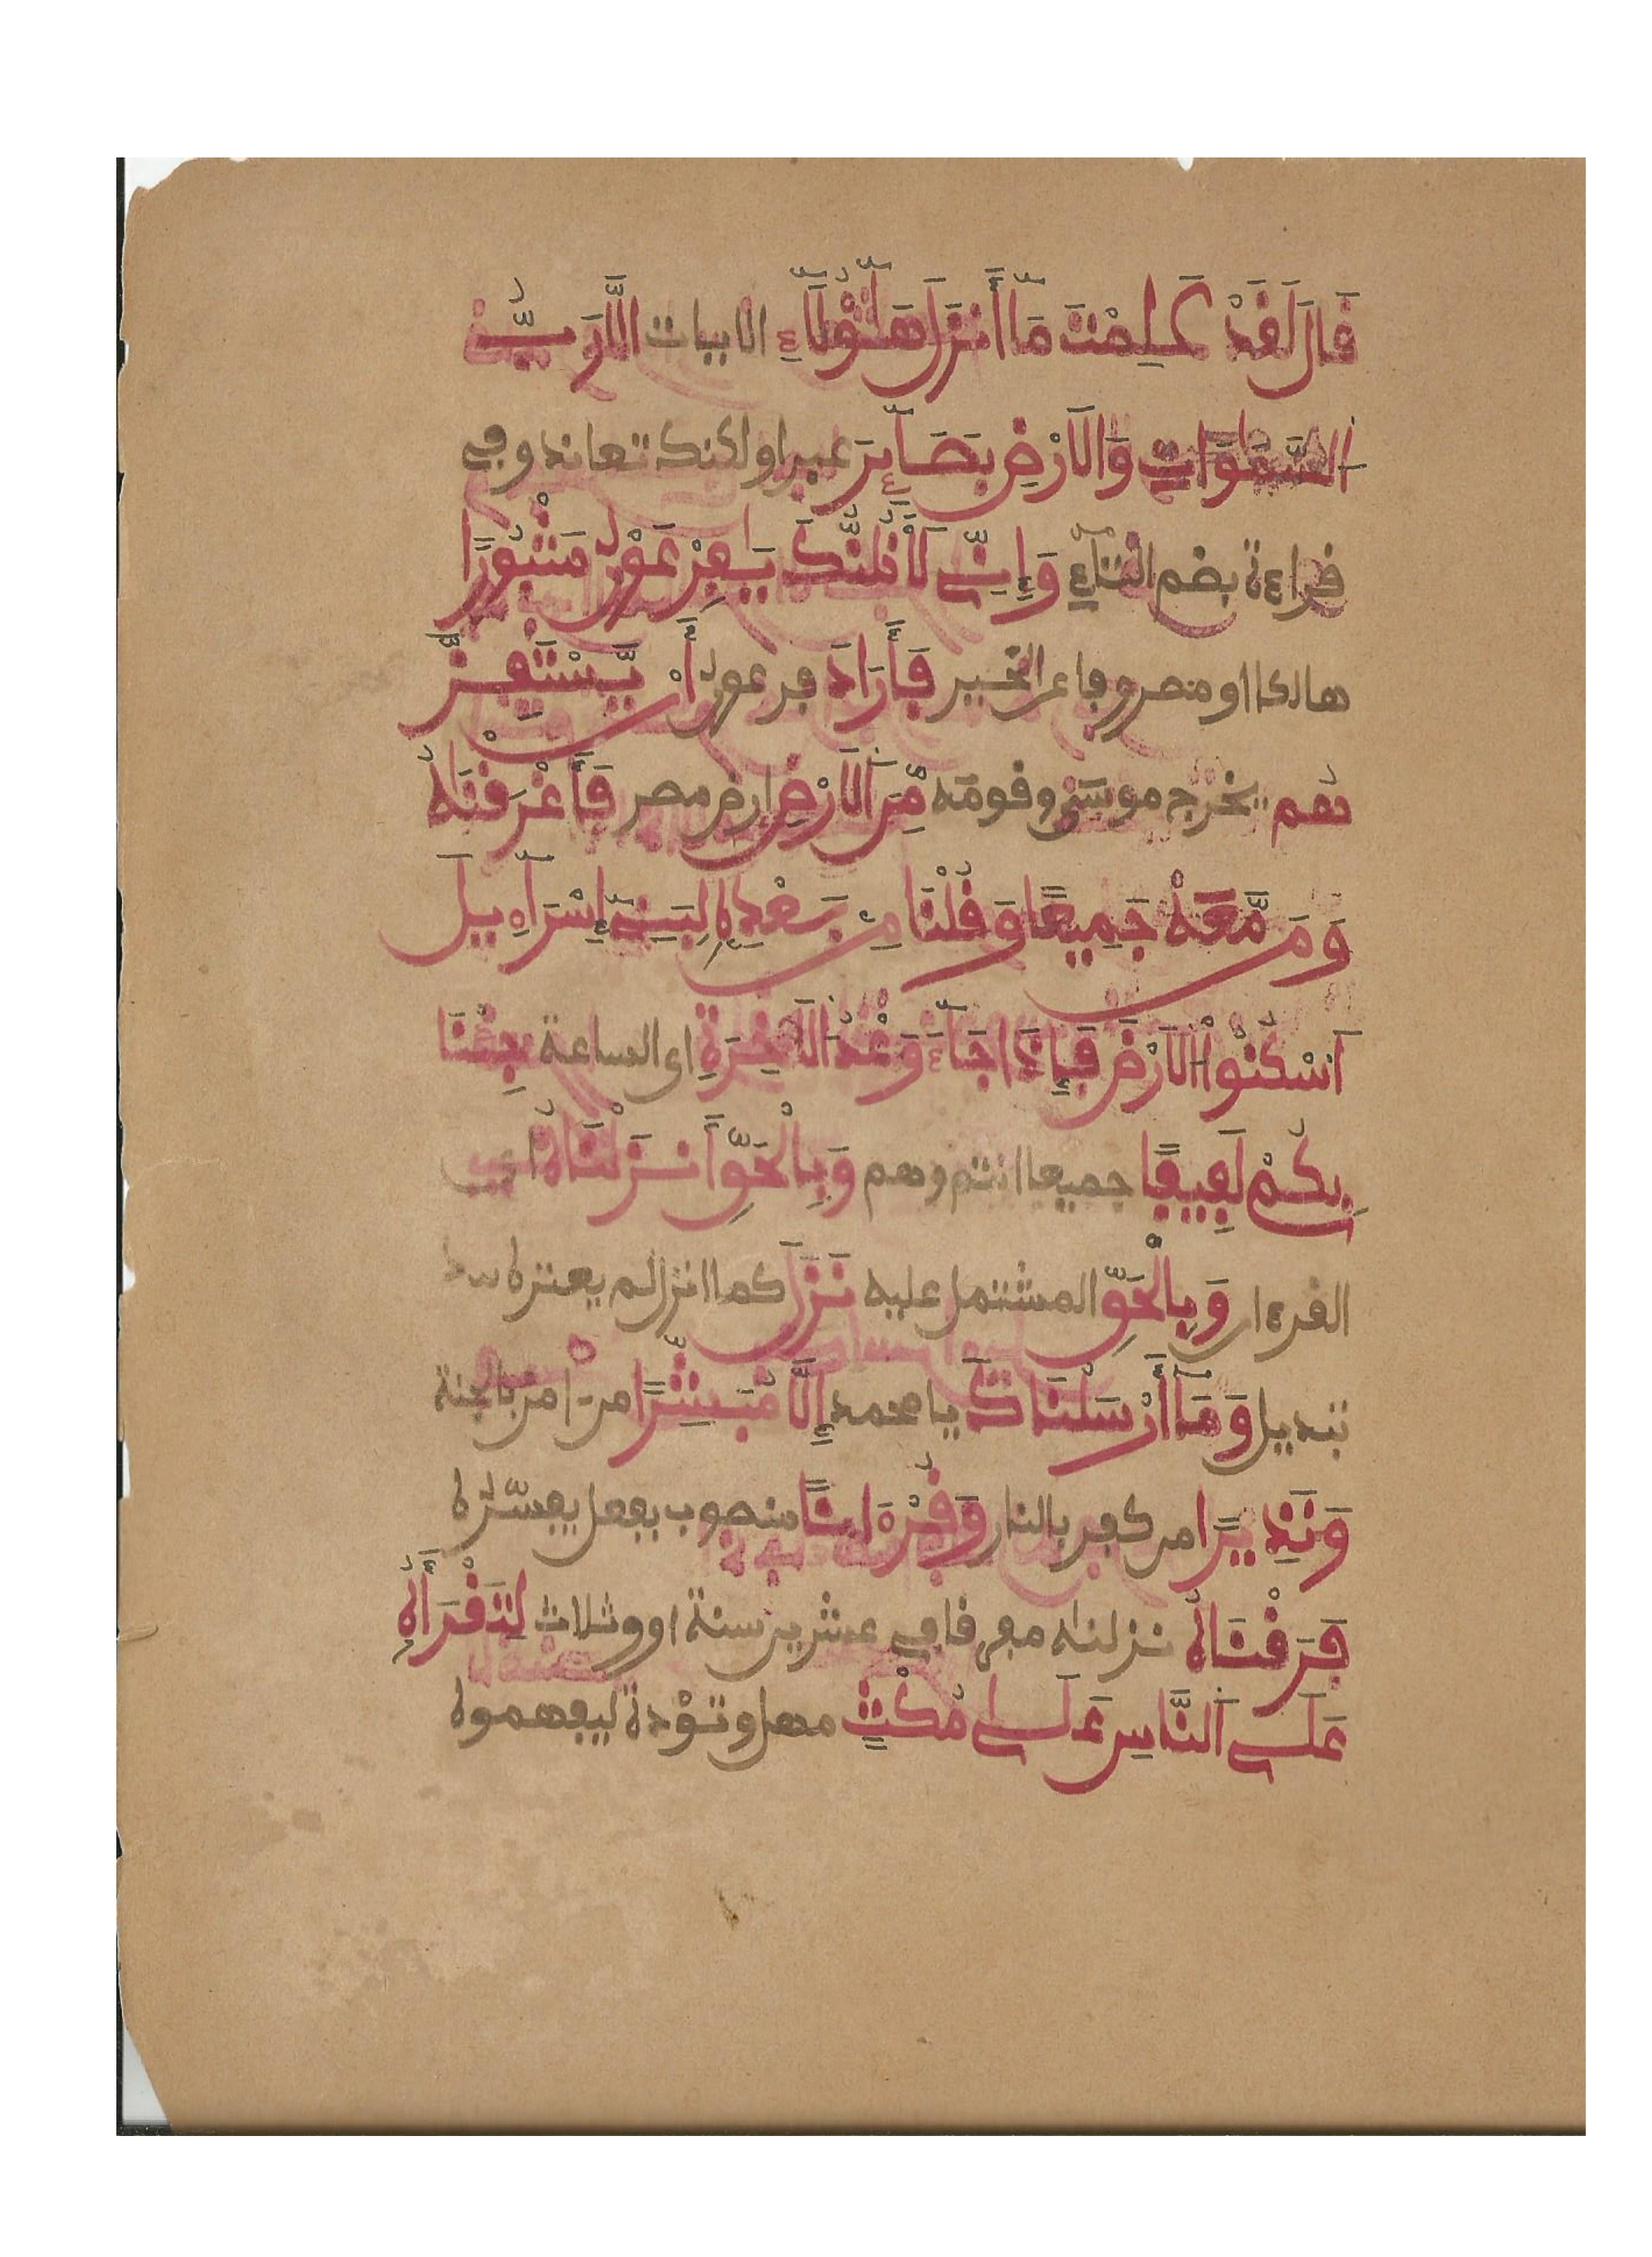 قَالَ لَقَدْ عَلِمْتَ مَا أَنزَلَ هَٰؤُلَاءِ الايات إِلَّا رَبُّ
السَّمَٰوَاتِ وَالَارْضِ بَصَائِرَ عبرا ولكنك تعاند وفي
قراءة بضم التاء وَإِنِّي لَأَظُنُّكَ يَفِرْعَوْنُ مَثْبُورًا
هالكا او مصروفا عن الخير فَأَرَادَ فرعون أَنْ يَّسْتَفِزَّ
هُم يخرج موسى وقومه مِّنَ الَارْضِ ارض مصر فَأَغْرَقْنَٰهُ
وَمَن مَّعَهُ جَمِيعًا وَقُلْنَا مِنۢ بَعْدِهِ لِبَنِي إِسْرَآءِيلَ
اَسْكُنُوا الَارْضَ فَإِذَا جَآءَ وَعْدُ الَاخِرَةِ اى الساعة جِئْنَا
بِكُمْ لَفِيفًا جميعا انتم وهم وَبِالْحَقِّ أَنزَلْنَاهُ اى
القرءان وَبِالْحَقِّ المشتمل عليه نَزَلَ كما انزل لم يعتره
تبديل وَمَا أَرْسَلْنَاكَ يا محمد إِلَّا مُبَشِّرًا من ءامن بالجنة
وَنَذِيرًا من كفر بالنار وَقُرْءَانًا منصوب بفعل يفسّره
فَرَقْنَاهُ نزلناه مفرقا في عشرين سنة او وثلاث لِتَقْرَأَهُ
عَلَى اَلنَّاسِ عَلَىٰ مُكْثٍ مهل وتؤدة ليفهموه